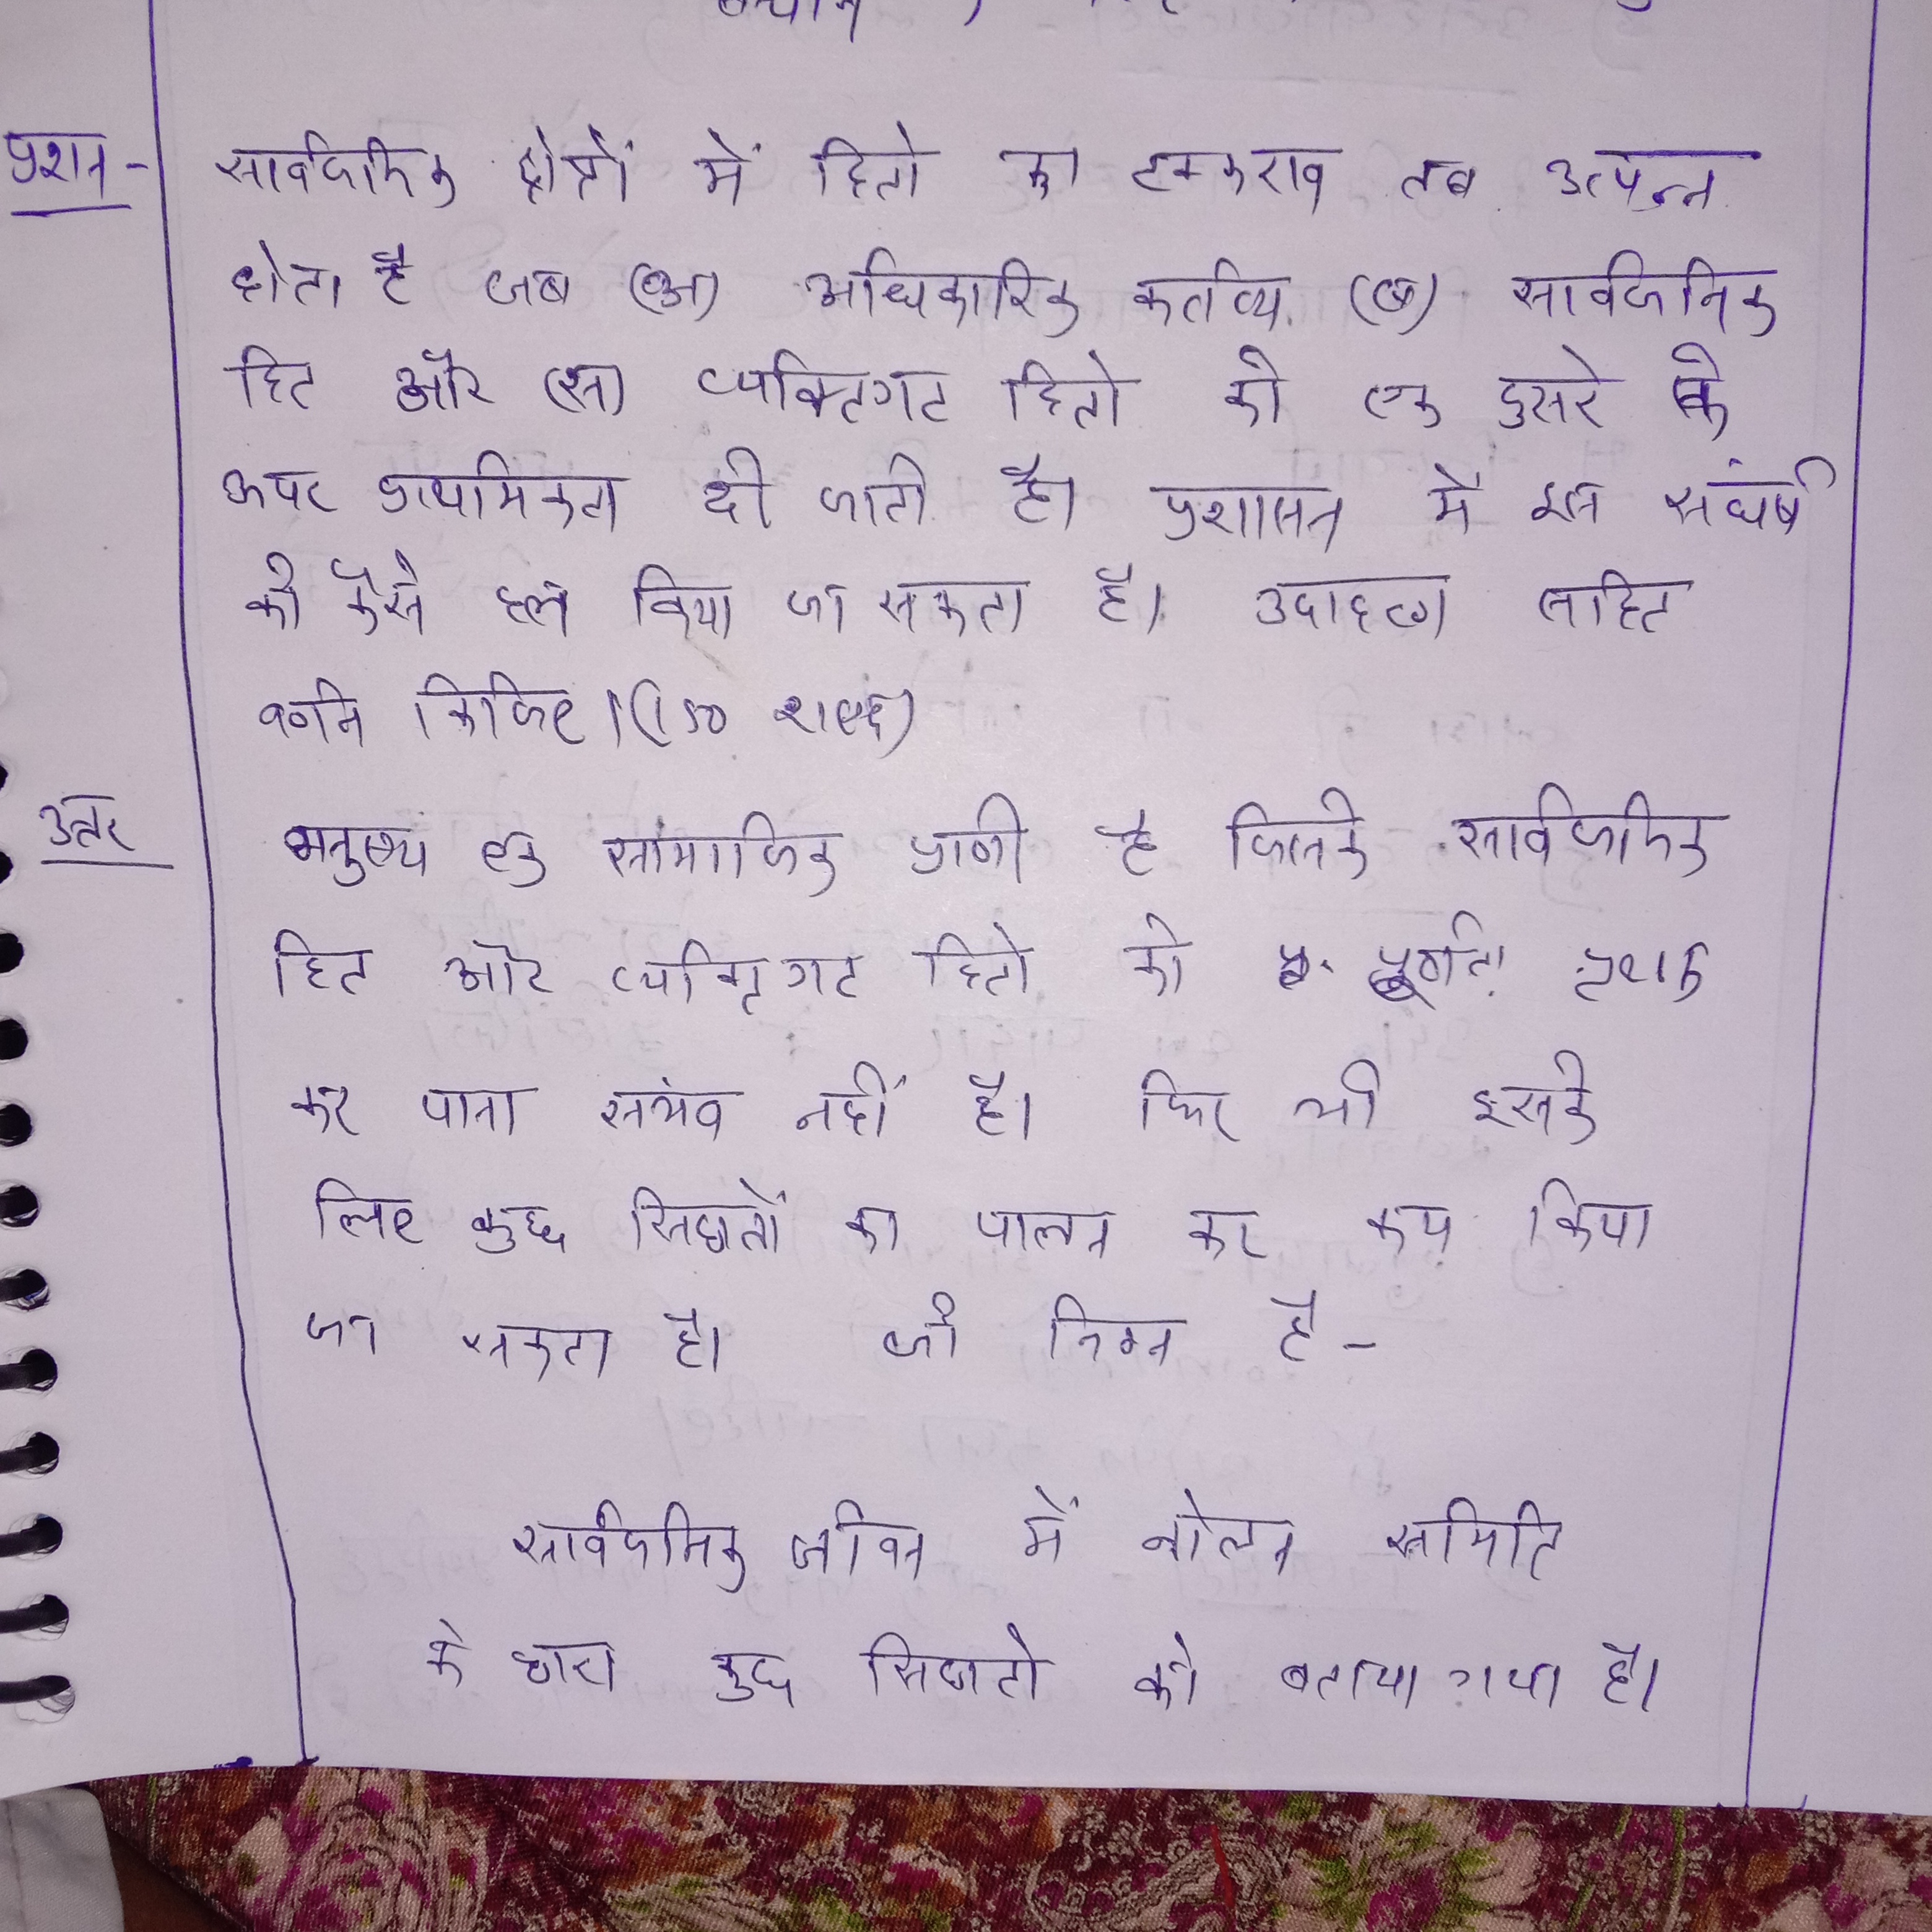 प्रशन - सार्वजनिक क्षेत्रों में हितो का टकराव तब उत्पन्न
होता है जब (अ) अधिकारिक कर्तव्य (ब) सार्वजनिक
हित और (स) व्यक्तिगत हितो को एक दुसरे के
ऊपर प्राथमिकता दी जाती है। प्रशासन में इस संघर्ष
को कैसे हल किया जा सकता है। उदाहरण सहित
वर्णन किजिए। (150 शब्द)
उत्तर मनुष्य एक सामाजिक प्राणी है जिसके सार्वजनिक
हित और व्यक्तिगत हितो को पूर्णता पृथक
कर पाना सभंव नहीं है। फिर भी इसके
लिए कुछ सिद्धातों का पालन कर कम किया
जा सकता है। जो निम्न है -
सार्वजनिक जीवन में नोलन समिति
के द्वारा कुछ सिद्धातो को बताया गया है।